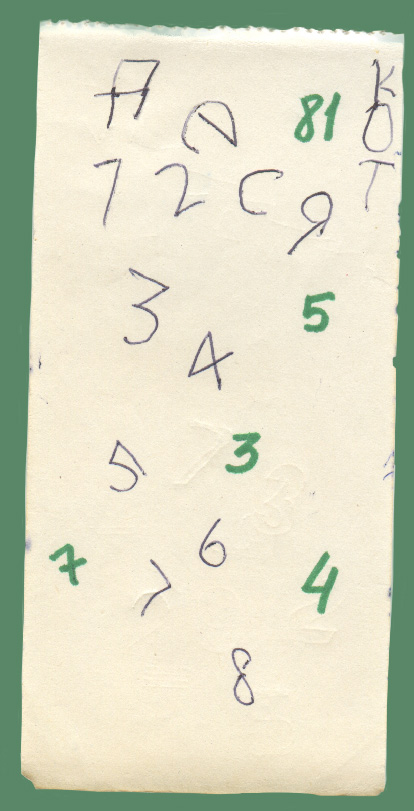 А 81
КОТ
1 2 С Я
3 5
4
5 3
6
7 7 4
8